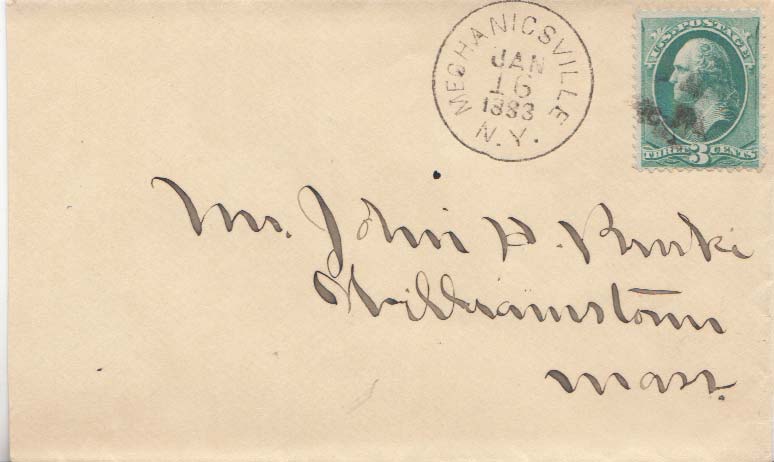 MECHANICSVILLE
JAN
16
1883
N.Y.
U.S. POSTAGE
THREE 3 CENTS
Mr. John P.
Williamstown
Mass.